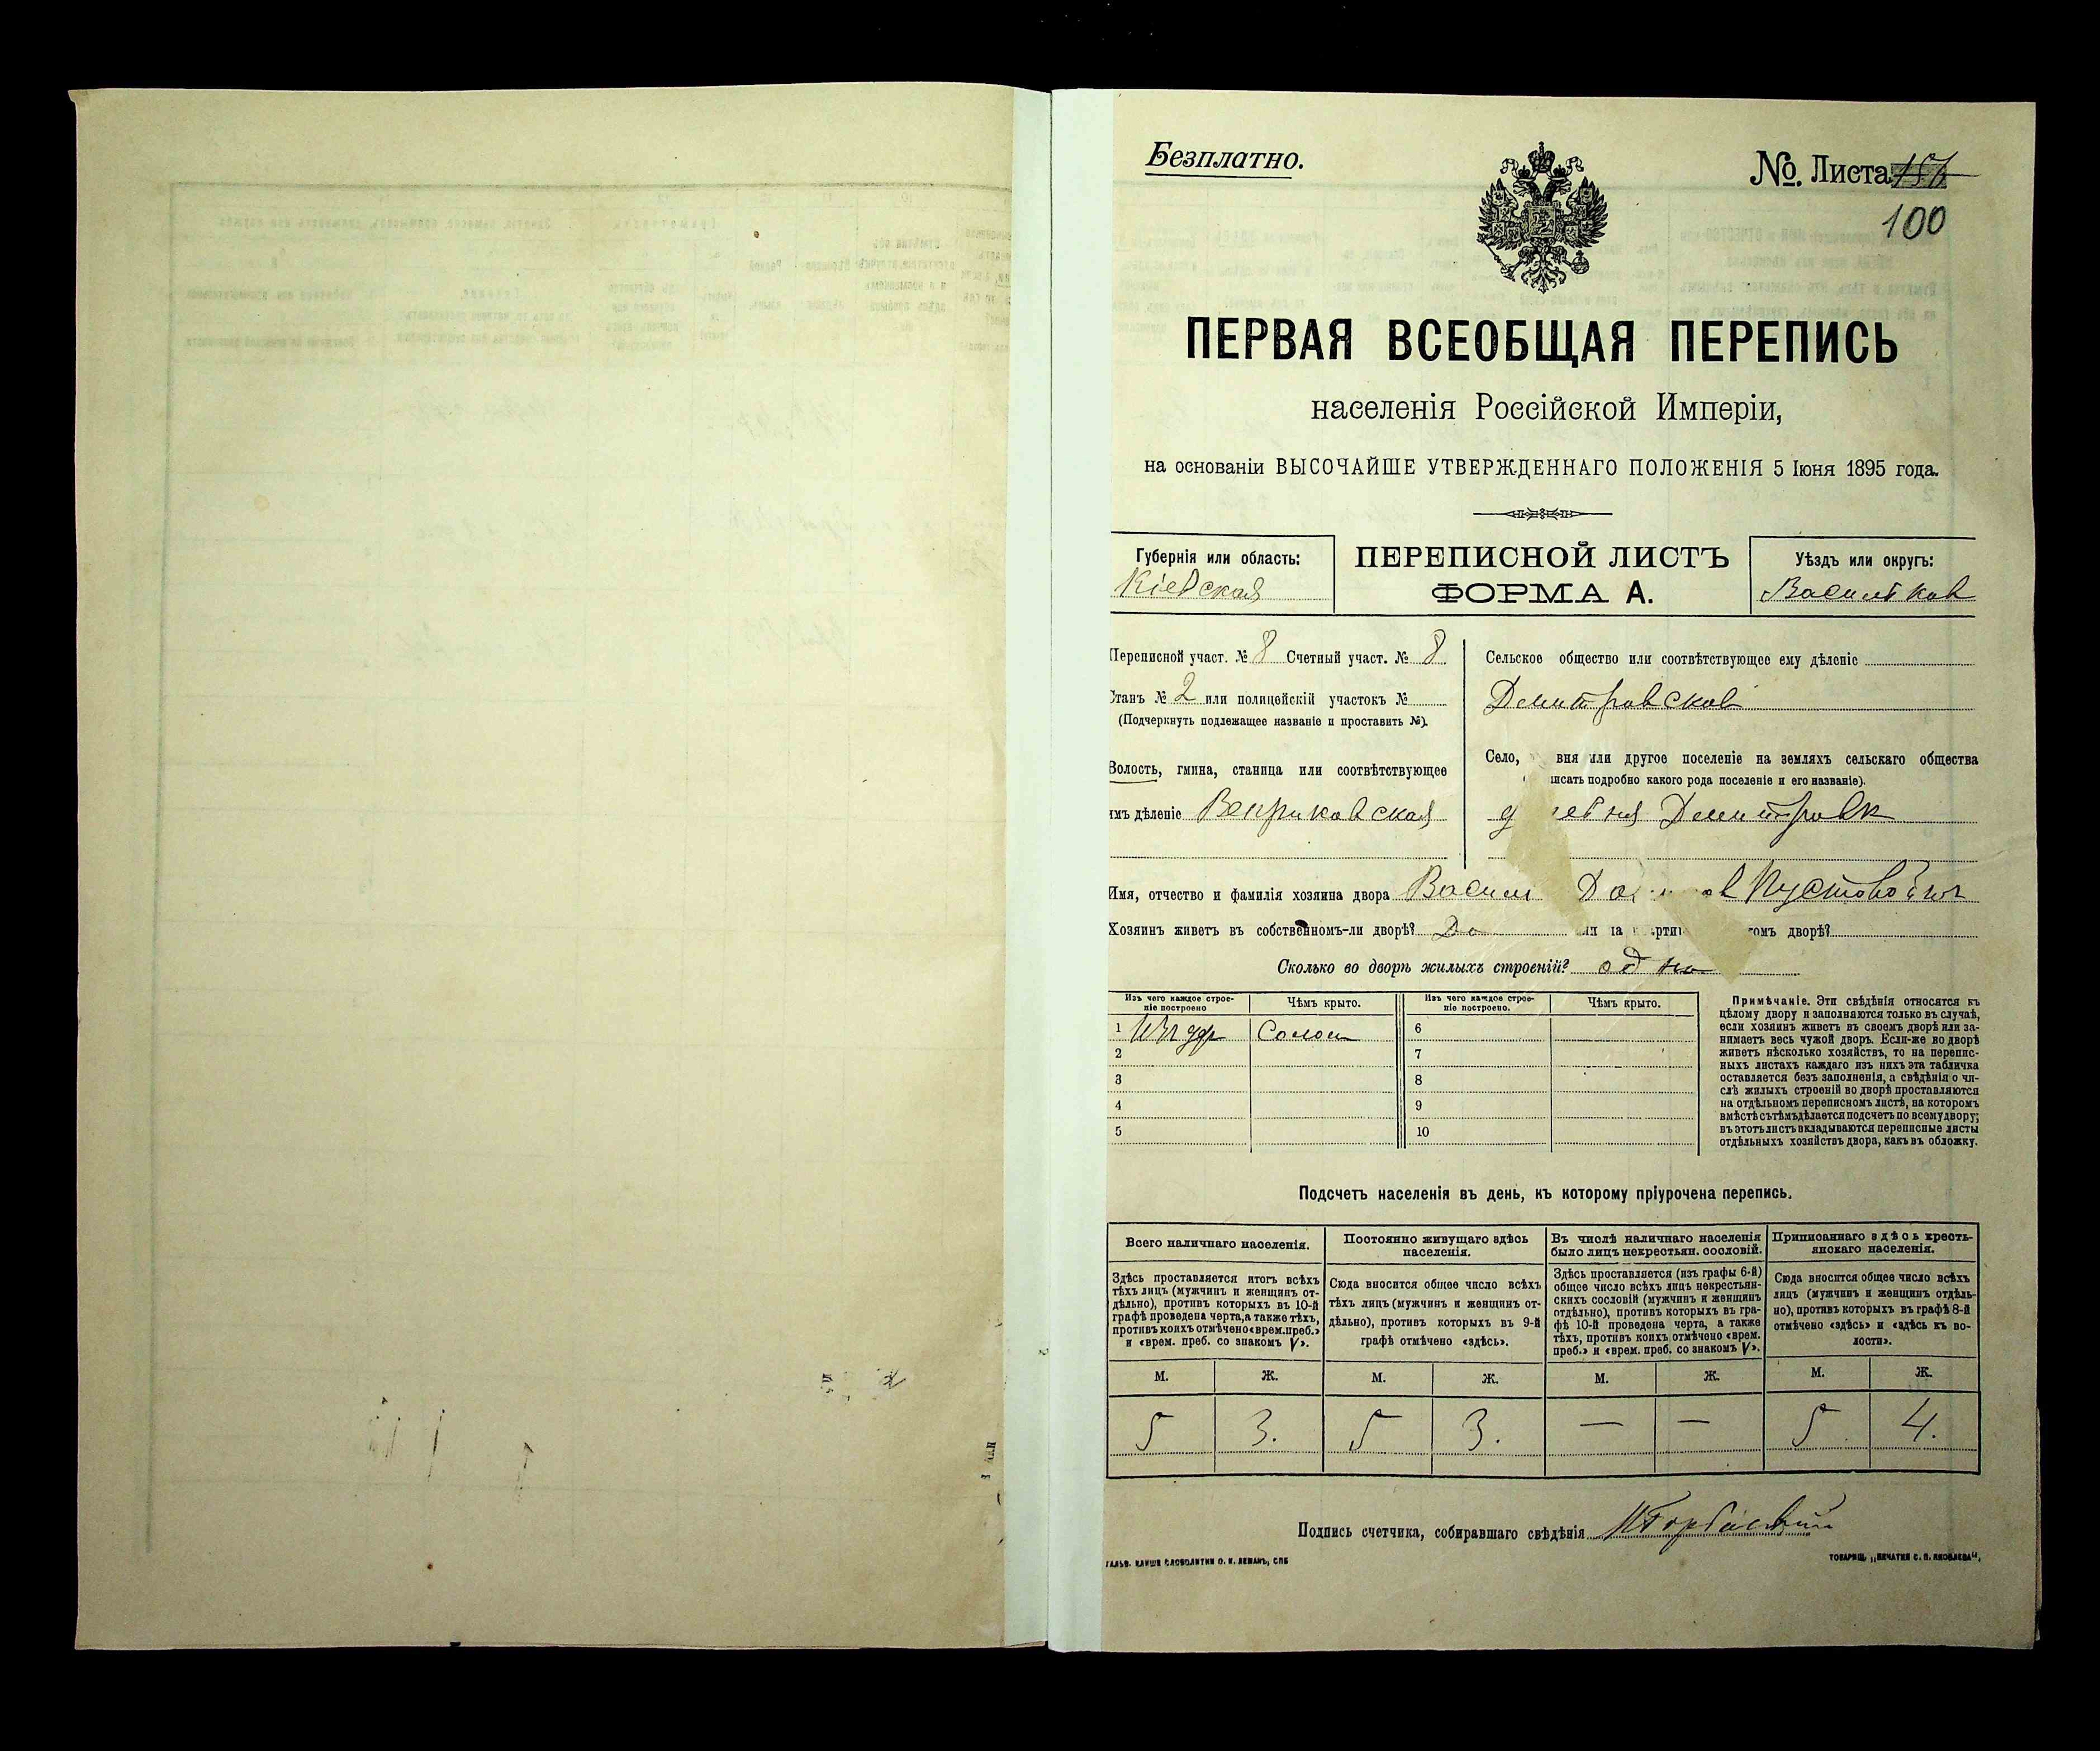 Безплатно.
№. Листа
100
ПЕРВАЯ ВСЕОБЩАЯ ПЕРЕПИСЬ
населенія Россійской Имперіи,
на основаніи ВЫСОЧАЙШЕ УТВЕРЖДЕННАГО ПОЛОЖЕНІЯ 5 Іюня 1895 года.
Губернія или область:
Кіевская
ПЕРЕПИСНОЙ ЛИСТЪ
ФОРМА А.
Уѣздъ или округъ:
Переписной участ. № 8 Счетный участ. № 8
Станъ № 2 или полицейскій участокъ №
(Подчеркнуть подлежащее названіе и проставить №).
Волость, гмина, станица или соотвѣтствующее
имъ дѣленіе Веприковская
Сельское общество или соотвѣтствующее ему дѣленіе
Село, вня или другое поселеніе на земляхъ сельскаго общества
исать подробно какого рода поселеніе и его названіе).
Имя, отчество и фамилія хозяина двора
Хозяинъ живетъ въ собственномъ-ли дворѣ? Да омъ дворѣ?
Сколько во дворѣ жилыхъ строеній? одно
Изъ чего каждое строе-
ніе построено
Чѣмъ крыто.
Изъ чего каждое строе-
ніе построено.
Чѣмъ крыто.
1 Солом 6
2 7
3 8
4 9
5 10
Примѣчаніе. Эти свѣдѣнія относятся къ
цѣлому двору и заполняются только въ случаѣ,
если хозяинъ живетъ въ своемъ дворѣ или за-
нимаетъ весь чужой дворъ. Если-же во дворѣ
живетъ нѣсколько хозяйствъ, то на перепис-
ныхъ листахъ каждаго изъ нихъ эта табличка
оставляется безъ заполненія, а свѣдѣнія о чи-
слѣ жилыхъ строеній во дворѣ проставляются
на отдѣльномъ переписномъ листѣ, на которомъ
вмѣстѣ съ тѣмъ дѣлается подсчетъ по всему двору;
въ этотъ листъ вкладываются переписные листы
отдѣльныхъ хозяйствъ двора, какъ въ обложку.
Подсчетъ населенія въ день, къ которому пріурочена перепись.
Всего наличнаго населенія.
Здѣсь проставляется итогъ всѣхъ
тѣхъ лицъ (мужчинъ и женщинъ от-
дѣльно), противъ которыхъ въ 10-й
графѣ проведена черта, а также тѣхъ,
противъ коихъ отмѣчено «врем. преб.»
и «врем. преб. со знакомъ V».
Постоянно живущаго здѣсь
населенія.
Сюда вносится общее число всѣхъ
тѣхъ лицъ (мужчинъ и женщинъ от-
дѣльно), противъ которыхъ въ 9-й
графѣ отмѣчено «здѣсь».
Въ числѣ наличнаго населенія
было лицъ некрестьян. сословій.
Здѣсь проставляется (изъ графы 6-й)
общее число всѣхъ лицъ некрестьян-
скихъ сословій (мужчинъ и женщинъ
отдѣльно), противъ которыхъ въ гра-
фѣ 10-й проведена черта, а также
тѣхъ, противъ коихъ отмѣчено «врем.
преб.» и «врем. преб. со знакомъ V».
Приписаннаго здѣсь кресть-
янскаго населенія.
Сюда вносится общее число всѣхъ
лицъ (мужчинъ и женщинъ отдѣль-
но), противъ которыхъ въ графѣ 8-й
отмѣчено «здѣсь» и «здѣсь къ во-
лости».
М. Ж. М. Ж. М. Ж. М. Ж.
5 3. 5 3. — — 5 4.
Подпись счетчика, собиравшаго свѣдѣнія
ГАЛЬВ. КЛИШЕ СЛОВОЛИТНИ О. И. ЛЕМАНЪ, СПБ
ТОВАРИЩ. „ПЕЧАТНЯ С. П. ЯКОВЛЕВА“.